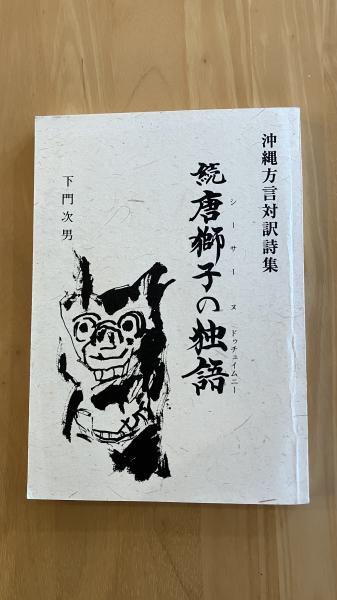 沖縄方言対訳詩集
続唐獅子の独語
シーサーヌ ドゥチュイムニー
下門次男